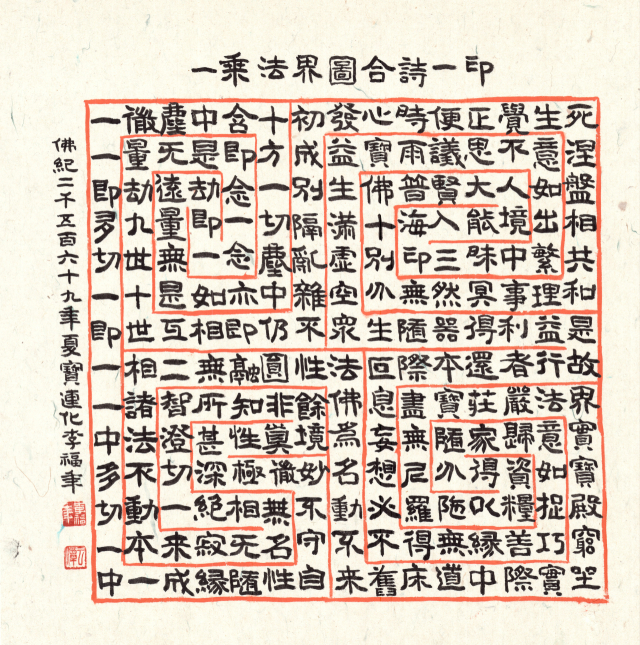 一乘法界圖合詩一印
一微塵中含十初發心時便正覺生死
一量无是即方成益寶雨議思不意涅
即劫遠劫念一別生佛普賢大人如盤
多九量即一切隔滿十海入能境出相
切世無一念塵亂虛別印三昧中繁共
一十是如亦中雜空分無然冥事理和
即世互相即仍不衆生隨器得利益是
一相二無融圓性法叵際本還者行故
一諸智所知非餘佛息盡寶莊嚴法界
中法證甚性眞境爲妄無隨家歸意實
多不切深極微妙名想尼分得資如寶
切動一絕相無不動必羅陀以糧捉殿
一本來寂无名守不不得無緣善巧窮
中一成緣隨性自來舊床道中際實坐
佛紀二千五百六十九年夏寶蓮化李福年